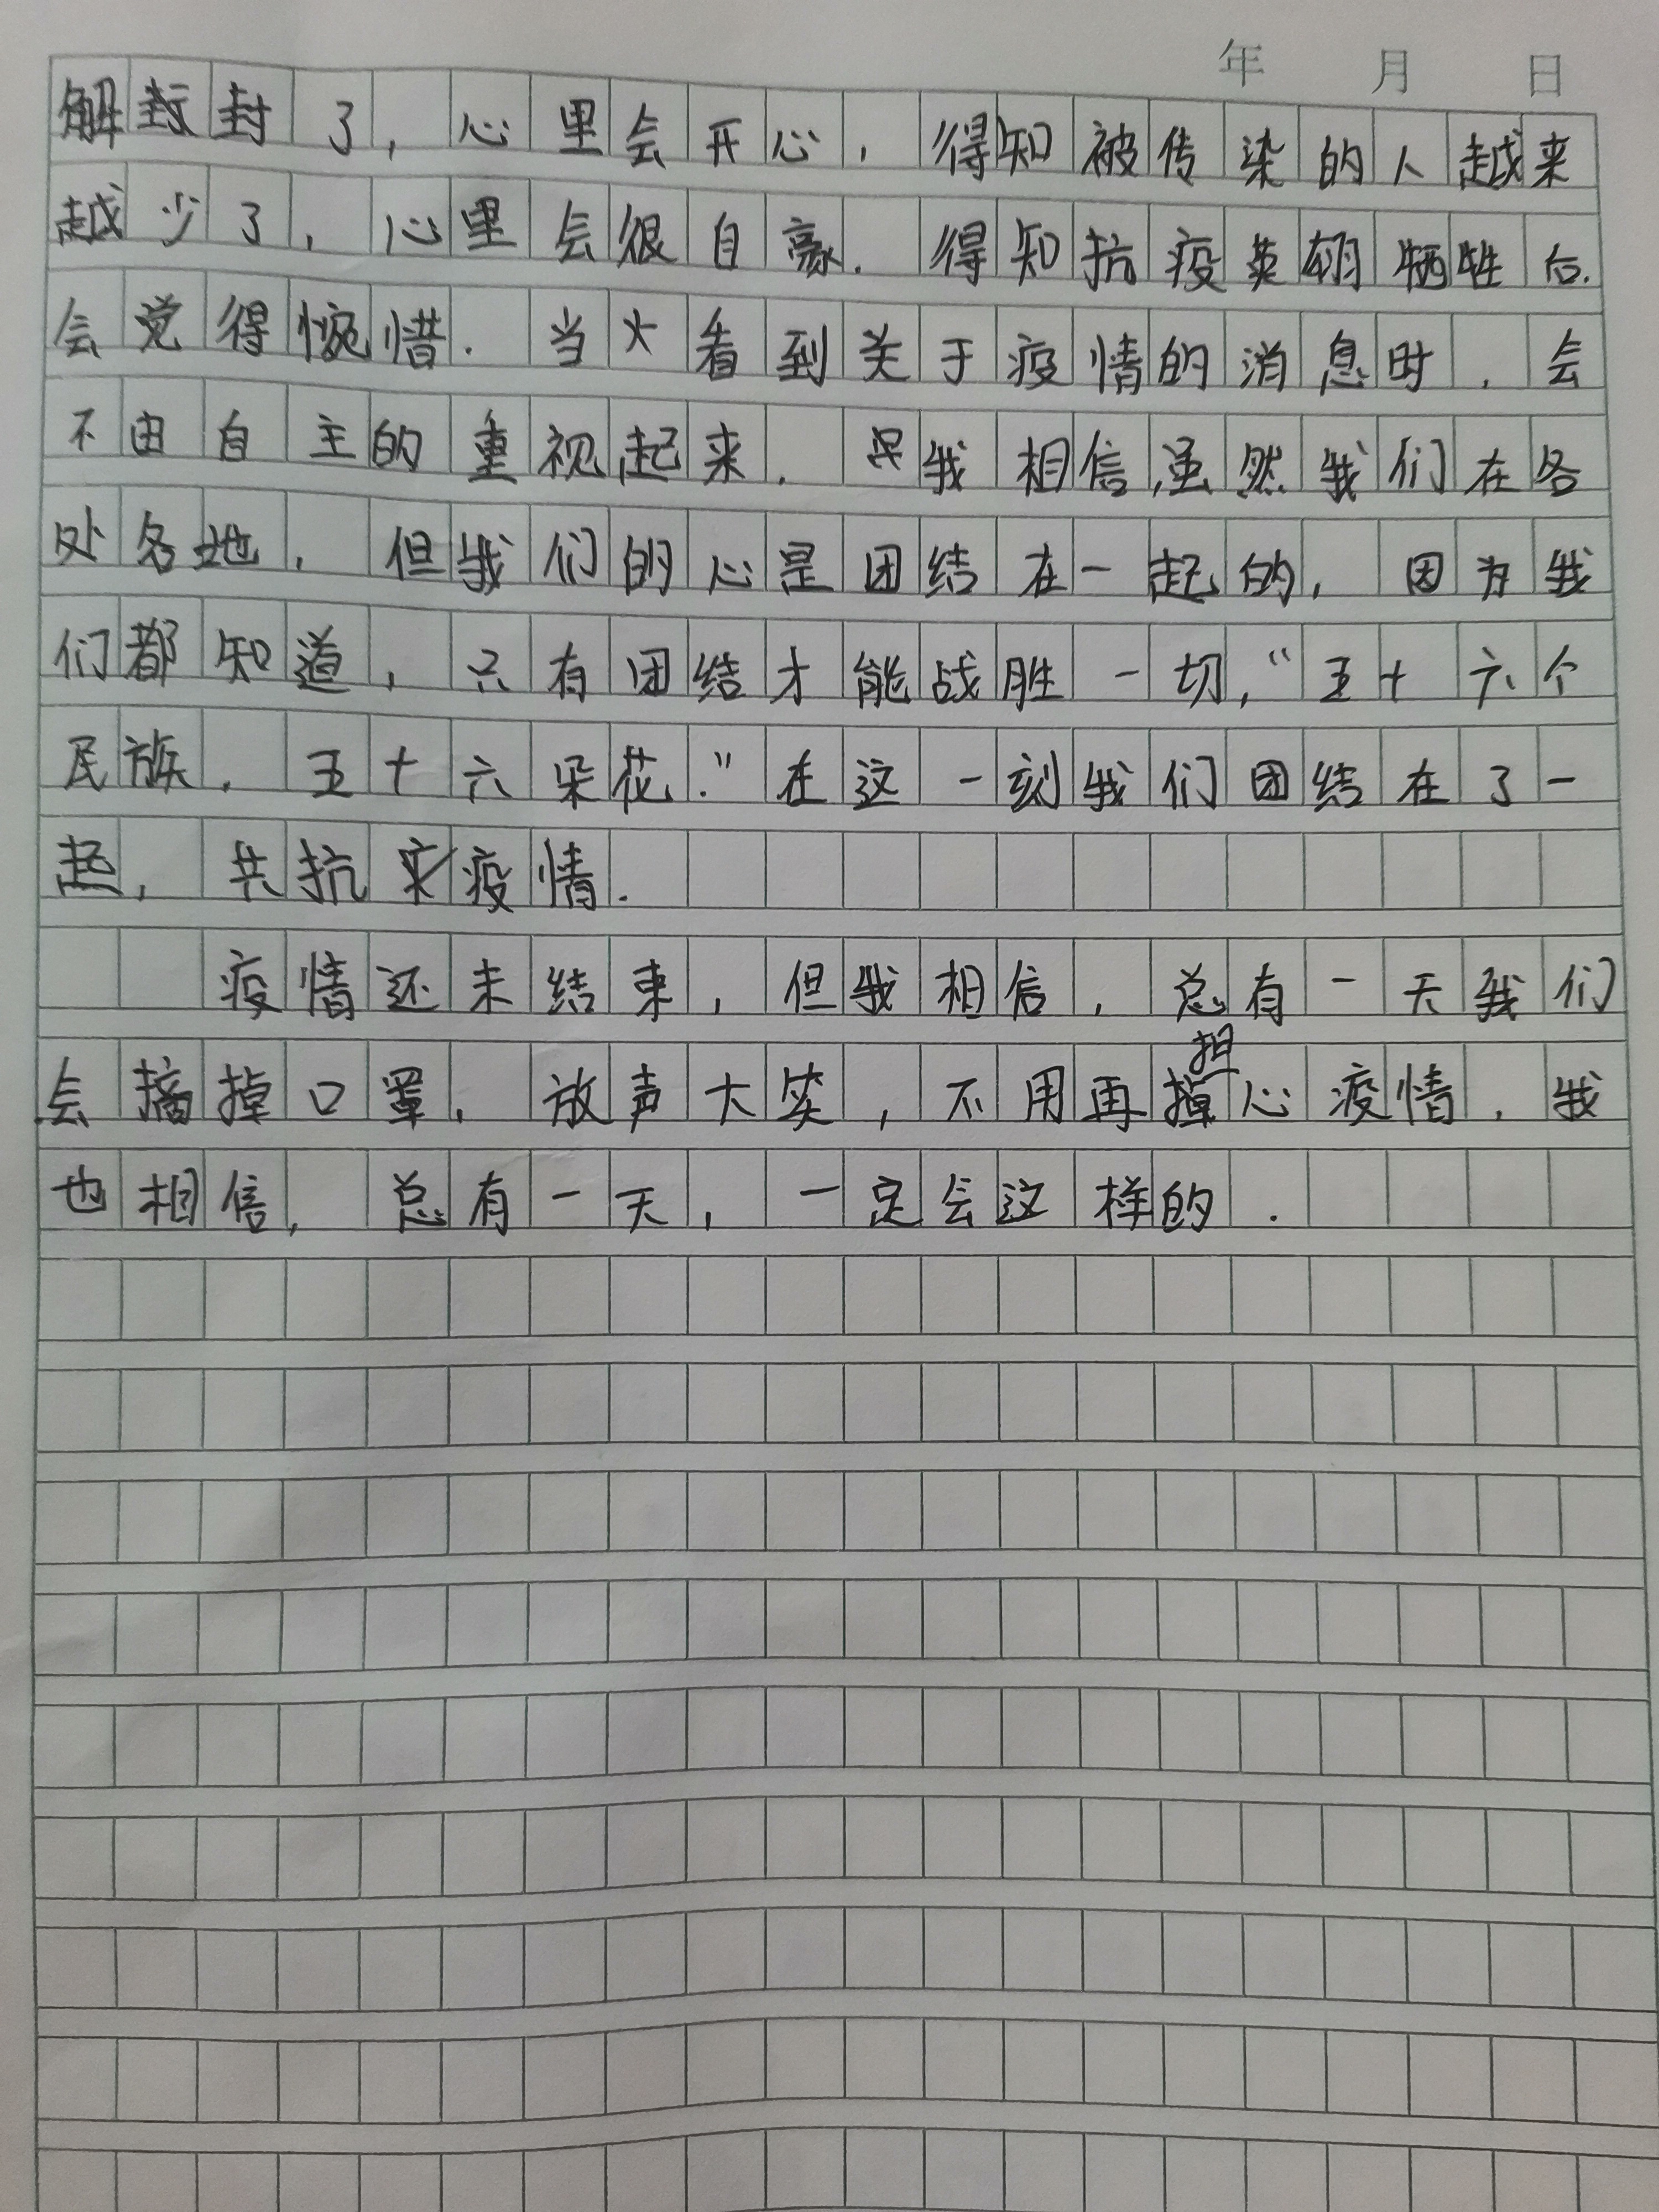 年 月 日
解封封了，心里会开心，得知被传染的人越来
越少了，心里会很自豪.得知抗疫英翱牺牲后.
会觉得惋惜.当大看到关于疫情的消息时，会
不由自主的重视起来.我相信,虽然我们在各
处各地，但我们的心是团结在一起的，因为我
们都知道，只有团结才能战胜一切,“五十六个
民族.五十六朵花.”在这一刻我们团结在了一
起，共抗疫情.
疫情还未结束，但我相信，总有一天我们
担
会摘掉口罩.放声大笑，不用再掉心疫情.我
也相信，总有一天，一定会这样的.